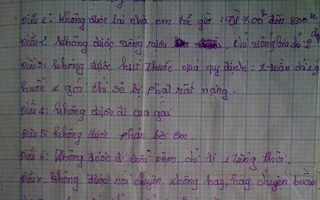 Điều 1: Không được lại nhà em trễ giờ: Từ 7.00ʰ đến 8.00ʰ
Điều 2: Không được uống rượu chỉ uống bia chỉ 2
Điều 3: Không được hút thuốc quá quy định: 1 tuần chỉ
thuốc 1 gói thì sẽ bị phạt rất nặng.
Điều 4: Không được đi cua gái
Điều 5: Không được phản bội em
Điều 6: Không được đi chơi đêm, chỉ đi thôi.
Điều 7: Không được nói chuyện không hay, hay chuyện buồn